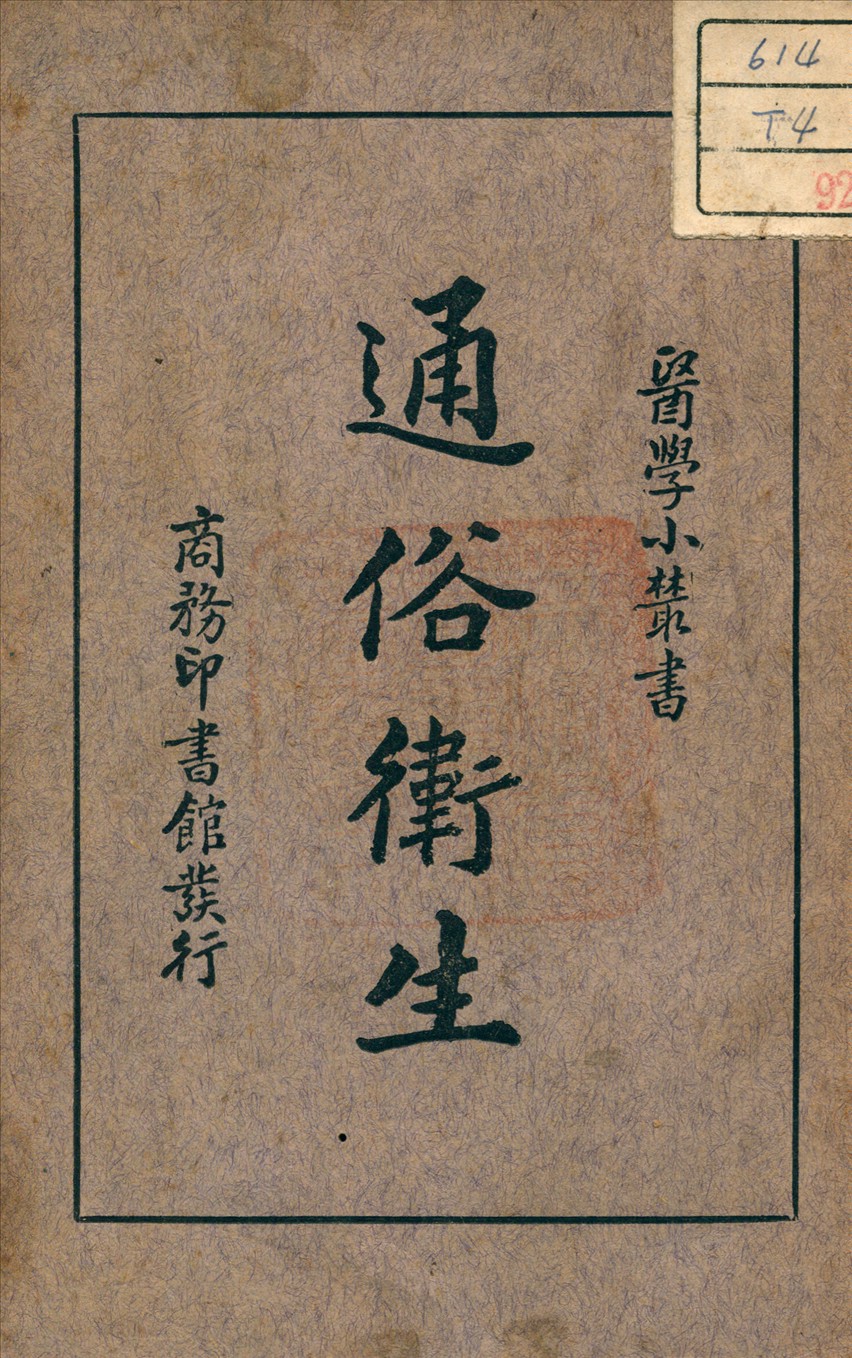 醫學小叢書
通俗衞生
商務印書館發行
614
T4
92